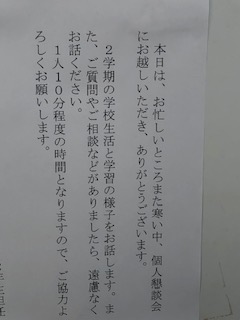 本日は、お忙しいところまた寒い中、個人懇談会
にお越しいただき、ありがとうございます。
２学期の学校生活と学習の様子をお話します。ま
た、ご質問やご相談などがありましたら、遠慮なく
お話ください。
１人１０分程度の時間となりますので、ご協力よ
ろしくお願いします。